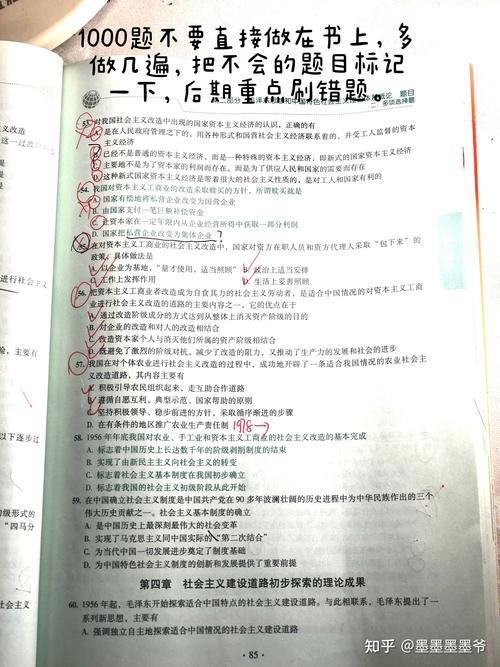 1000题不要直接做在书上,多
做几遍,把不会的题目标记
一下,后期重点刷错题。
题目
二、多项选择题
53. 对我国社会主义改造中出现的国家资本主义经济的认识,正确的有
A. 是在人民政府管理之下的,用各种形式和国营社会主义经济联系着的,并受工人监督的资本
主义经济
B. 已经不是普通的资本主义经济,而是一种特殊的资本主义经济,即新式的国家资本主义经济
C. 主要地不是为了资本家的利润而存在,而是为了供应人民和国家的需要而存在
D. 这种新式国家资本主义经济是带着很大的社会主义性质的,是对工人和国家有利的
54. 我国对资本主义工商业的改造采取赎买的方针,所谓赎买就是
A. 国家有偿地将私营企业改变为国营企业
B. 由国家支付一笔巨额补偿资金
C. 让资本家在一定年限内从企业经营所得中获取一部分利润
D. 国家把私营企业改变为集体企业
55. 在对资本主义工商业的社会主义改造中,国家对资方在职人员和资方代理人采取“包下来”的
政策,具体做法是
A. 以企业为基地,“量才使用,适当照顾”
B. 政治上适当安排
C. 工作上发挥作用
D. 生活上妥善照顾
56. 把资本主义工商业者改造成为自食其力的社会主义劳动者,是适合中国情况的对资本主义工商
业进行社会主义改造的道路的主要内容之一,它的优点在于
A. 通过改造阶级成分的方式达到从整体上消灭资产阶级的目的
B. 对企业的改造和对人的改造相结合
C. 改造资本家个人与消灭他们所属的资产阶级相结合
D. 既避免了激烈的阶级对抗,减少了改造的阻力,又推动了生产力的发展和社会的进步
57. 我国在对个体农业进行社会主义改造的过程中,成功地开辟了一条适合我国情况的农业社会主
义改造道路,其内容主要有
A. 积极引导农民组织起来,走互助合作道路
B. 遵循自愿互利、典型示范、国家帮助的原则
C. 坚持积极领导、稳步前进的方针,采取循序渐进的步骤
D. 在有条件的地区推广农业生产责任制 1978→
58. 1956 年年底我国对农业、手工业和资本主义工商业的社会主义改造的基本完成
A. 标志着中国历史上长达数千年的阶级剥削制度的结束
B. 实现了由新民主主义向社会主义的转变
C. 标志着社会主义基本制度在我国初步确立
D. 标志着我国的社会主义初级阶段从此开始
59. 在中国确立社会主义制度是中国共产党在 90 多年波澜壮阔的历史进程中为中华民族作出的三个
伟大历史贡献之一。社会主义基本制度的确立
A. 是中国历史上最深刻最伟大的社会变革
B. 实现了马克思主义同中国实际的“第二次结合”
C. 为当代中国一切发展进步奠定了制度基础
D. 为中国特色社会主义制度的创新和发展提供了重要前提
第四章 社会主义建设道路初步探索的理论成果
60. 1956 年起,毛泽东开始探索适合中国特点的社会主义建设道路。与此相联系,毛泽东提出了一
系列新思想,主要有
A. 强调独立自主地探索适合中国情况的社会主义建设道路
· 85 ·
知乎 @墨墨墨墨爷